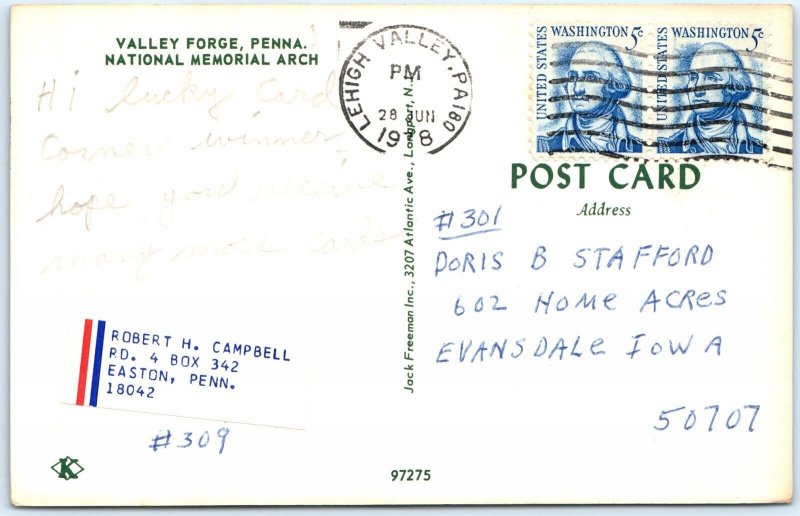 VALLEY FORGE, PENNA.
NATIONAL MEMORIAL ARCH
Hi lucky Card
Corner winner
hope you receive
many more cards
ROBERT H. CAMPBELL
RD. 4 BOX 342
EASTON, PENN.
18042
#309
K
Jack Freeman Inc., 3207 Atlantic Ave., Longport, N.J.
97275
LEHIGH VALLEY, PA 180
PM
28 JUN
1978
UNITED STATES
WASHINGTON 5c
UNITED STATES
WASHINGTON 5c
POST CARD
Address
#301
DORIS B STAFFORD
602 HOME ACRES
EVANSDALE IOWA
50707